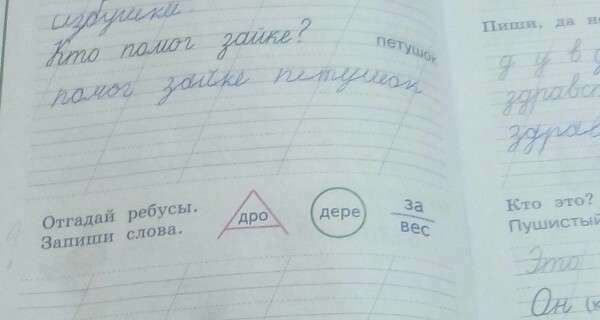 избушки.
Кто помог зайке?
петушок
помог зайке петушок
Отгадай ребусы.
Запиши слова.
дро
дере
за
вес
Пиши, да не
д у в
здравс
здрав
Кто это?
Пушистый
Это
Он (к